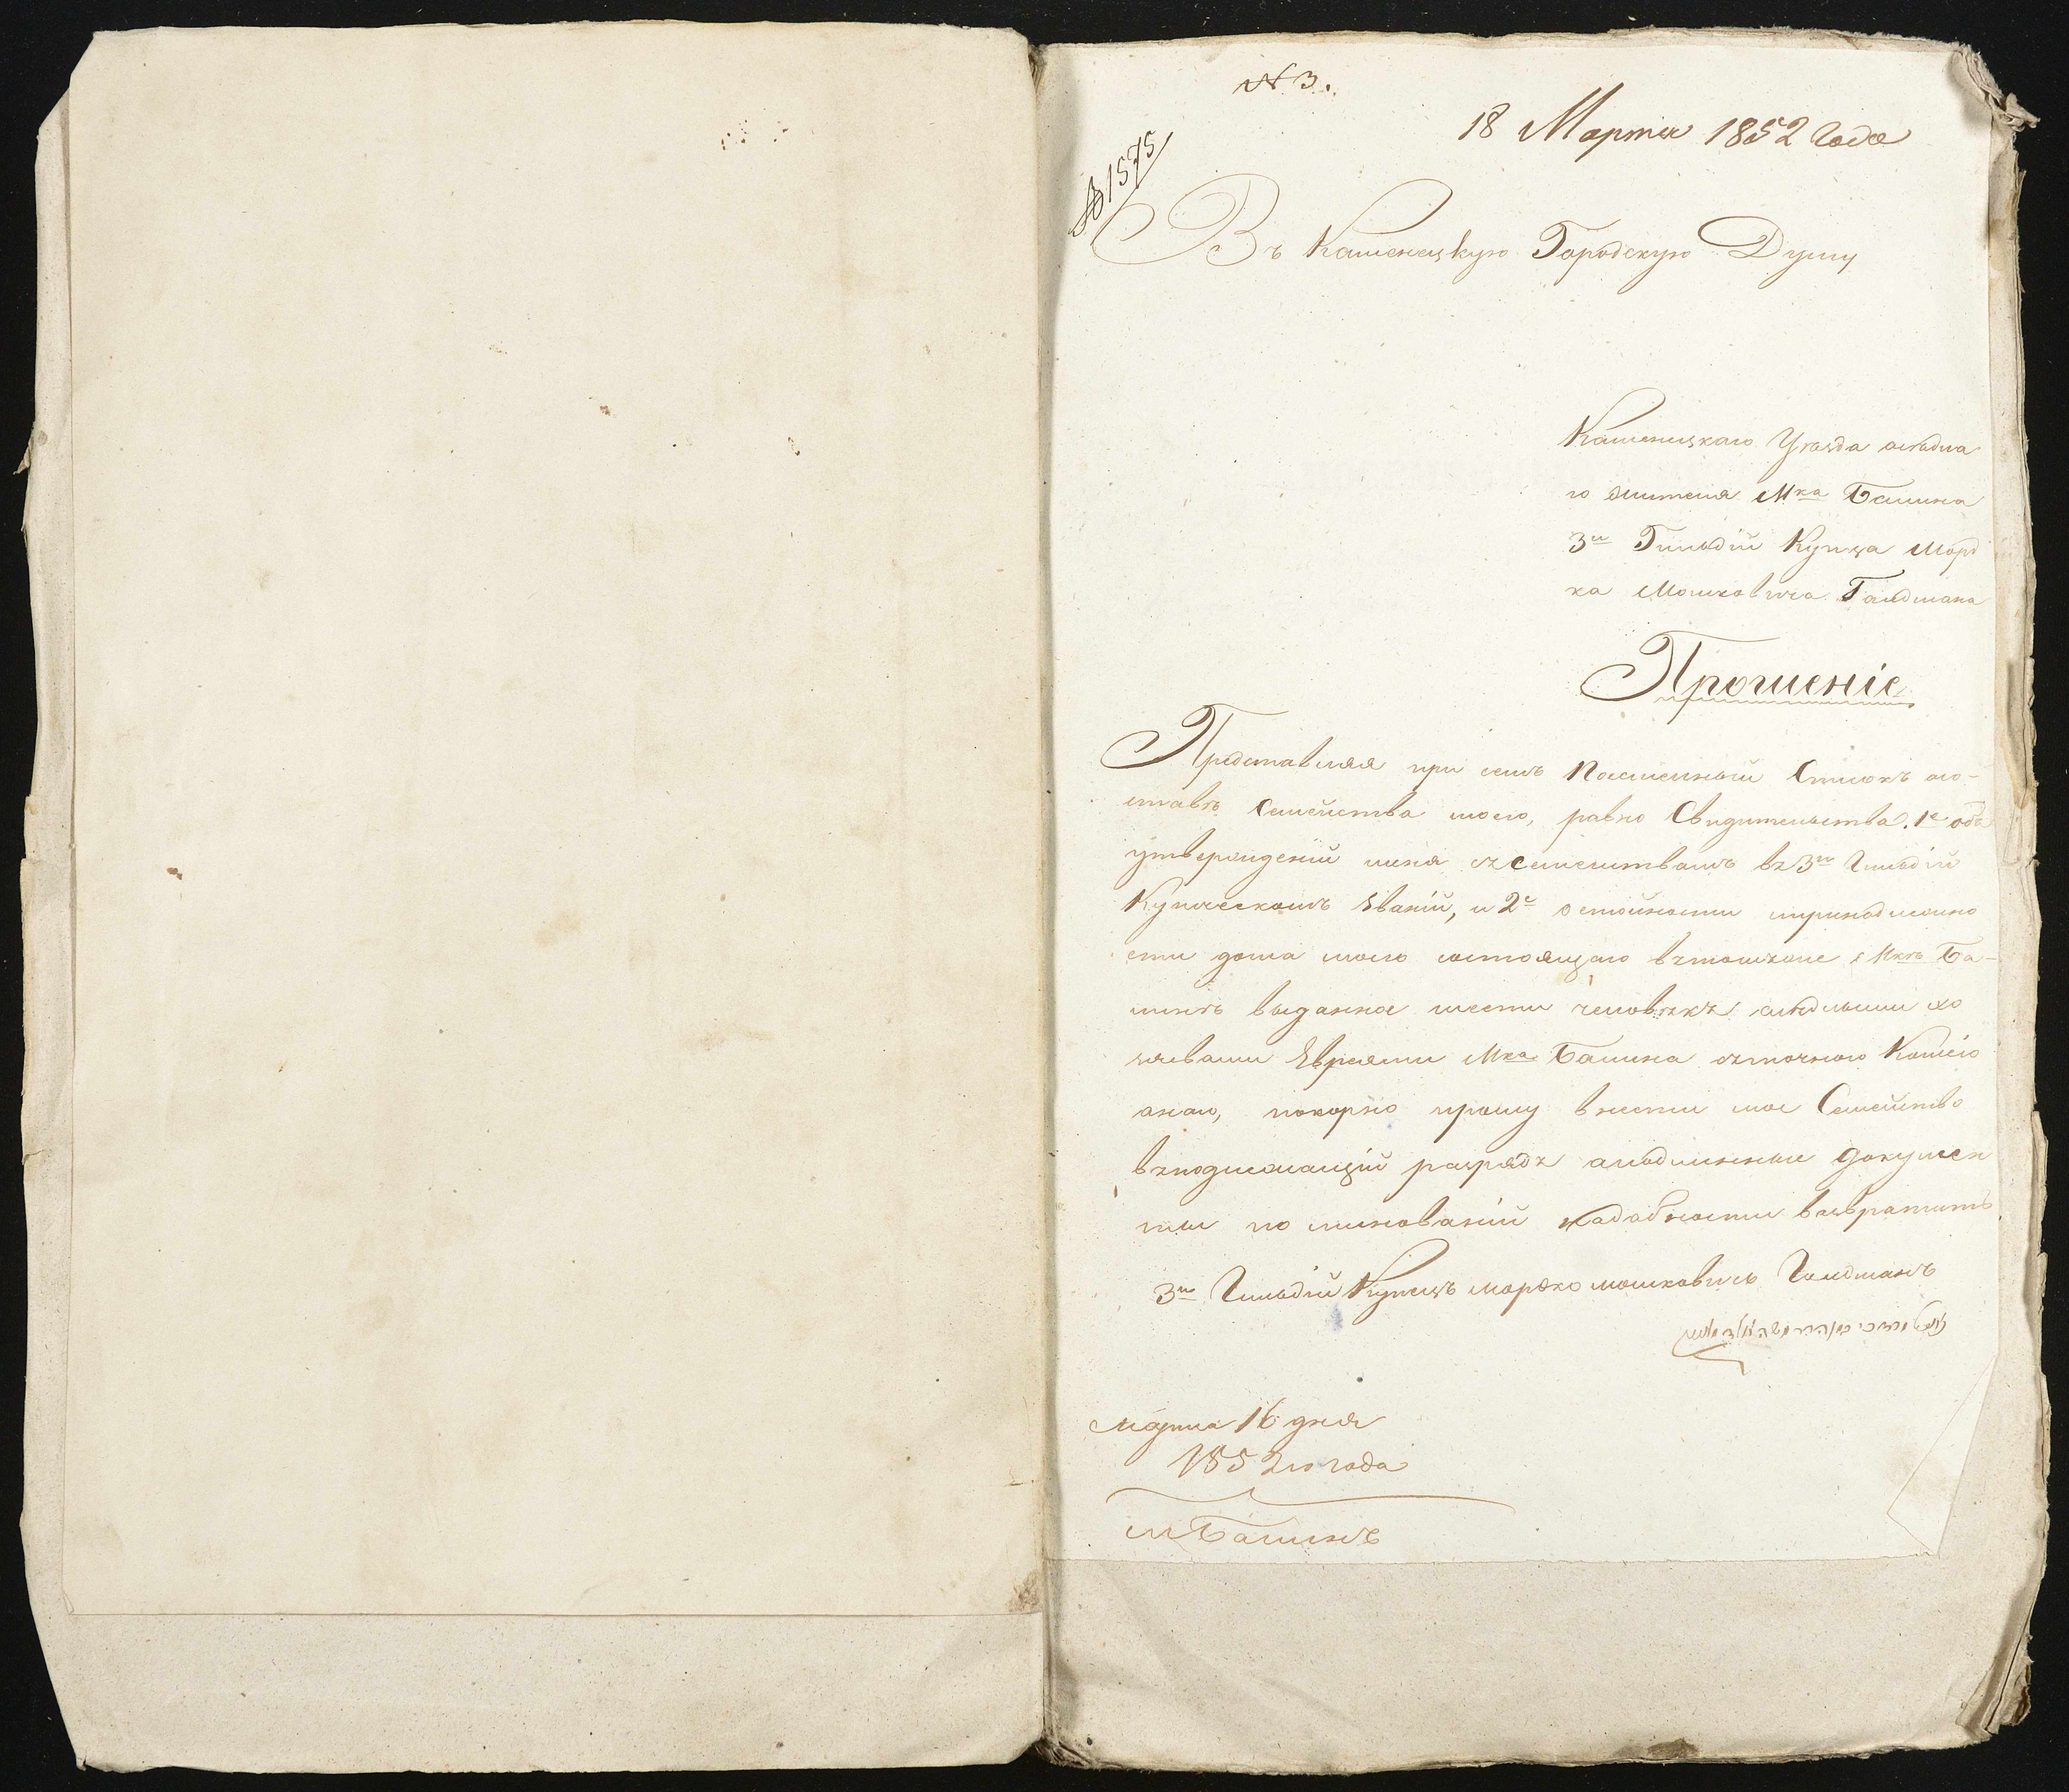 № 3.
18 Марта 1852 года
№ 1575
Въ Каменецкую Городскую Думу
Каменецкаго Уѣзда осѣдла
го жителя Мка Балина
3й Гильдіи Купца Морд
ка Мошковича Галдмана
Прошеніе
Представляя при семъ посемейный Списокъ осо-
ставѣ Семейства моего, равно Свидительства. 1е объ
утвержденіи миня съ семействомъ въ 3й Гильдіи
Купическомъ званіи, и 2е о стоймости принадлежно
сти дома моего состоящаго въ томже Мкѣ Ба-
линѣ выданное шести человѣкъ осѣдлыми хо
зяевами Евреями Мка Балина съ точною Копіею
онаго, покорно прошу внести мое Семейство
въ подлежащій разрядъ а подлинные докумен
ты по минованіи надобности возвратить
3й Гильдіи Купецъ мордко мошковичъ Галдманъ
марта 16 дня
1852го года
м Балинъ